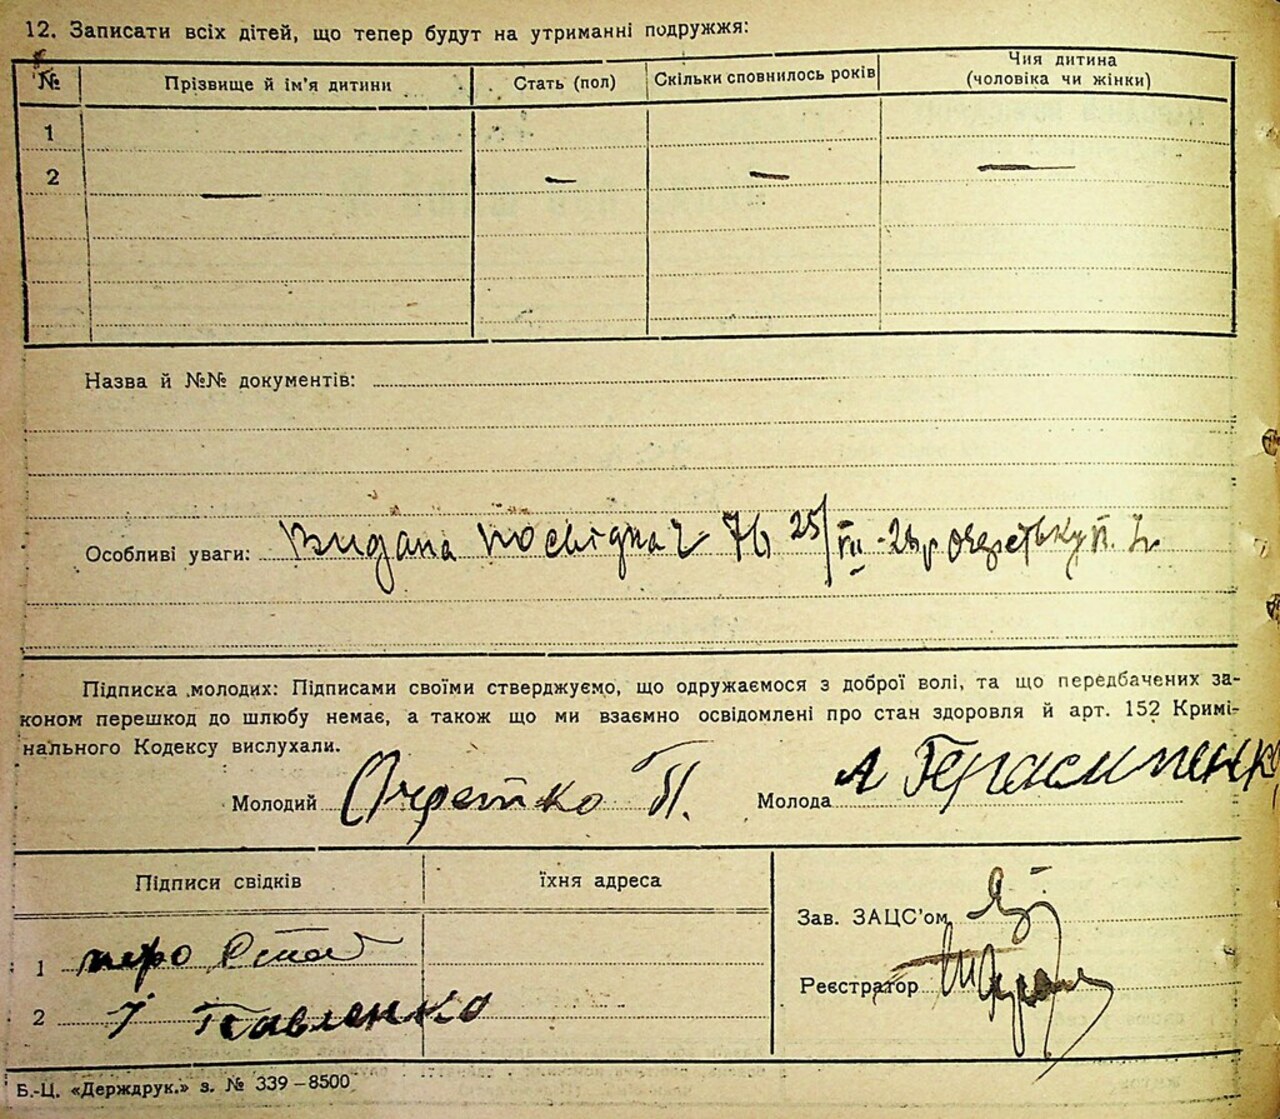 12. Записати всіх дітей, що тепер будут на утриманні подружжя:
№ Прізвище й ім'я дитини Стать (пол) Скільки сповнилось років Чия дитина (чоловіка чи жінки)
1
2 — — — —
Назва й №№ документів:
Особливі уваги: Видана посвідка 76 25/VII-
Підписка молодих: Підписами своїми стверджуємо, що одружаємося з доброї волі, та що передбачених за-
коном перешкод до шлюбу немає, а також що ми взаємно освідомлені про стан здоровля й арт. 152 Кримі-
нального Кодексу вислухали.
Молодий Очретко П. Молода А Герасименко
Підписи свідків їхня адреса
Зав. ЗАЦС'ом
1
Реєстратор
2 І Павленко
Б.-Ц. «Держдрук.» з. № 339–8500